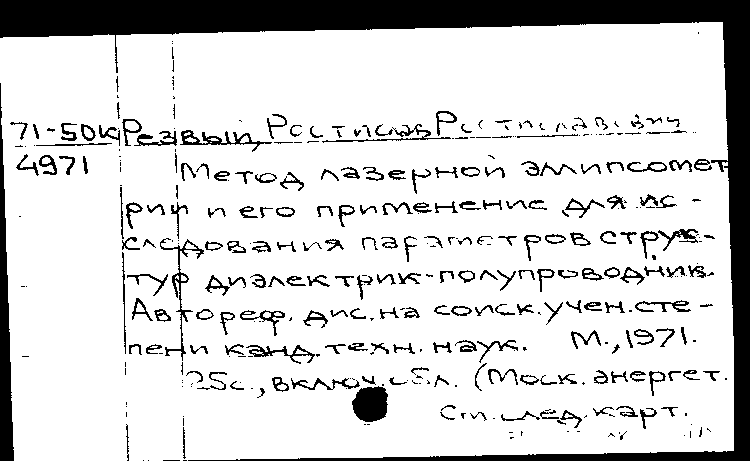 71-50к Резвый, Ростислав Ростиславович
4971 Метод лазерной эллипсомет-
рии и его применение для ис-
следования параметров струк-
тур диэлектрик-полупроводник.
Автореф. дис. на соиск. учен. сте-
пени канд. техн. наук. М., 1971.
25с., включ. обл. (Моск. энергет.
См. след. карт.